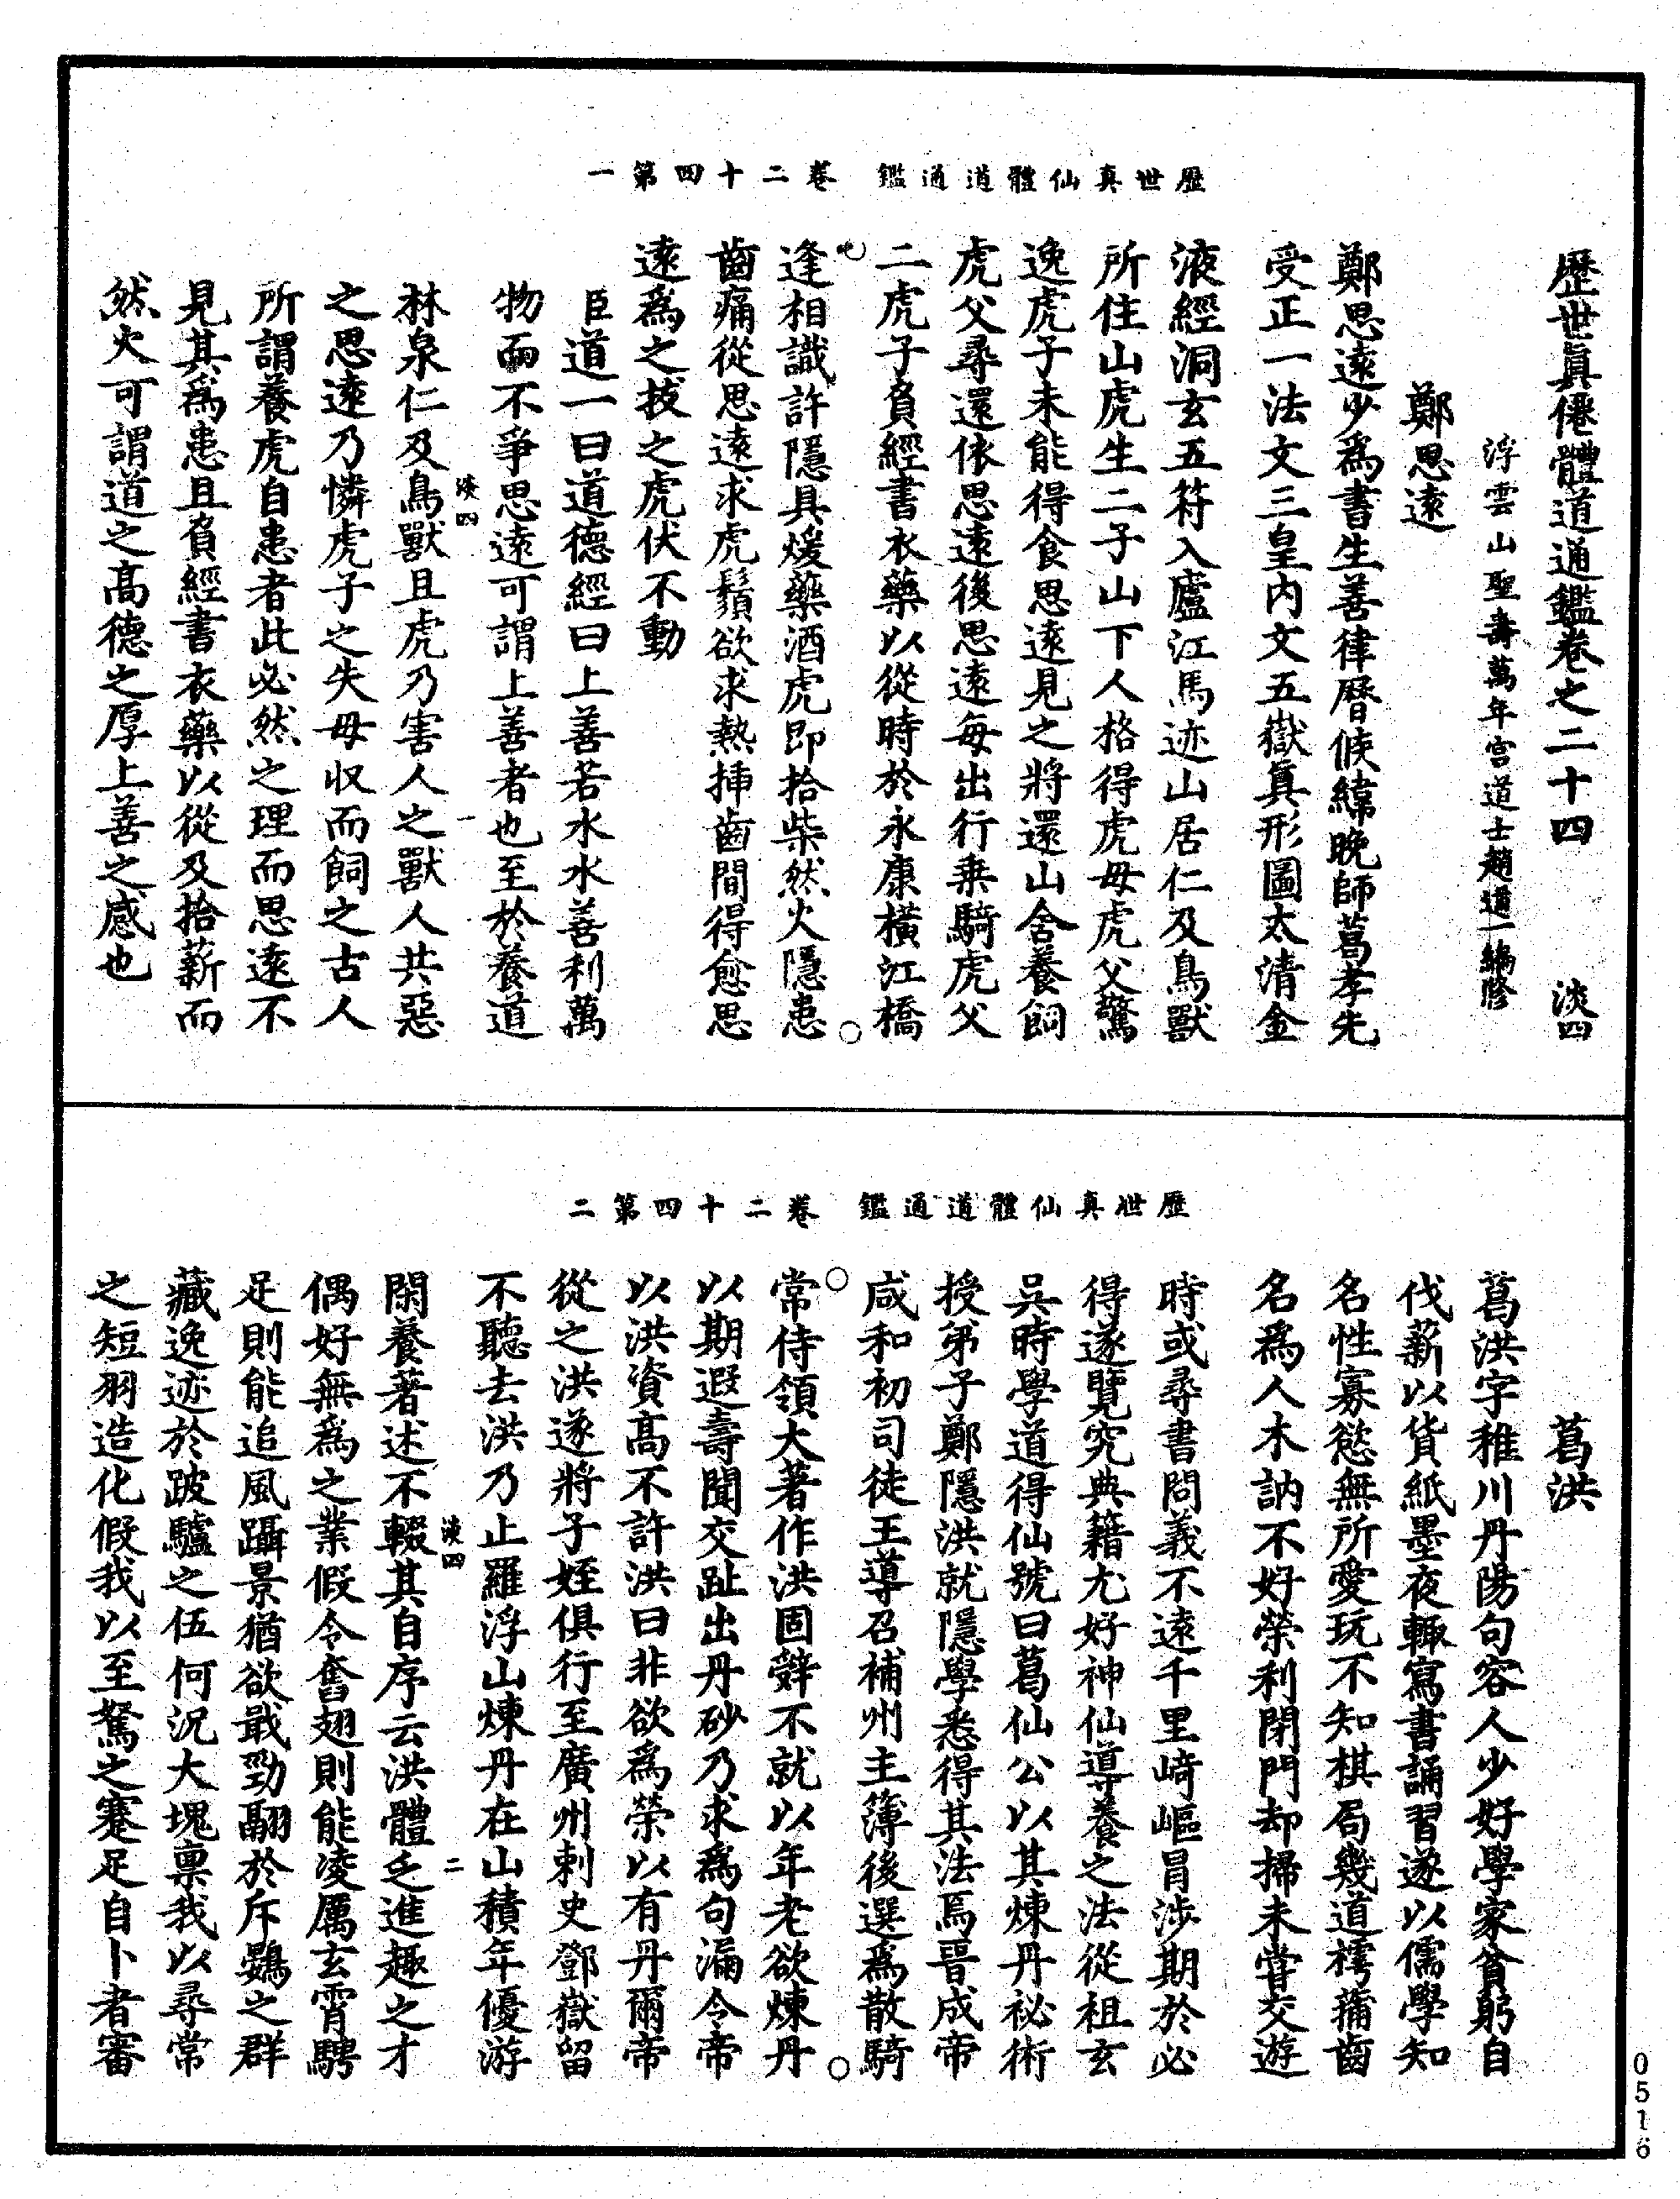 歷世真仙體道通鑑　卷二十四第一
歷世眞僊體道通鑑卷之二十四　淡四
浮雲山聖壽萬年宮道士趙道一編修
鄭思遠
鄭思遠少爲書生善律曆候緯晚師葛孝先
受正一法文三皇內文五嶽眞形圖太清金
液經洞玄五符入廬江馬迹山居仁及鳥獸
所住山虎生二子山下人格得虎母虎父驚
逸虎子未能得食思遠見之將還山舍養飼
虎父尋還依思遠後思遠每出行乘騎虎父
二虎子負經書衣藥以從時於永康橫江橋
逢相識許隱具煖藥酒虎即拾柴然火隱患
齒痛從思遠求虎鬚欲求熱插齒間得愈思
遠爲之拔之虎伏不動
臣道一曰道德經曰上善若水水善利萬
物而不爭思遠可謂上善者也至於養道
淡四　一
林泉仁及鳥獸且虎乃害人之獸人共惡
之思遠乃憐虎子之失母収而飼之古人
所謂養虎自患者此必然之理而思遠不
見其爲患且負經書衣藥以從及拾薪而
然火可謂道之高德之厚上善之感也
歷世真仙體道通鑑　卷二十四第二
葛洪
葛洪字稚川丹陽句容人少好學家貧躬自
伐薪以貨紙墨夜輙寫書誦習遂以儒學知
名性寡慾無所愛玩不知棋局幾道樗蒱齒
名爲人木訥不好榮利閉門却掃未嘗交遊
時或尋書問義不遠千里崎嶇冒涉期於必
得遂覽究典籍尤好神仙導養之法從祖玄
吳時學道得仙號曰葛仙公以其煉丹祕術
授弟子鄭隱洪就隱學悉得其法焉晉成帝
咸和初司徒王導召補州主簿後選爲散騎
常侍領大著作洪固辭不就以年老欲煉丹
以期遐壽聞交趾出丹砂乃求爲句漏令帝
以洪資高不許洪曰非欲爲榮以有丹爾帝
從之洪遂將子姪俱行至廣州刺史鄧嶽留
不聽去洪乃止羅浮山煉丹在山積年優游
淡四　二
閑養著述不輟其自序云洪體乏進趣之才
偶好無爲之業假令奮翅則能凌厲玄霄騁
足則能追風躡景猶欲戢勁翮於斥鷃之群
藏逸迹於跛驢之伍何況大塊稟我以尋常
之短羽造化假我以至駑之蹇足自卜者審
0516